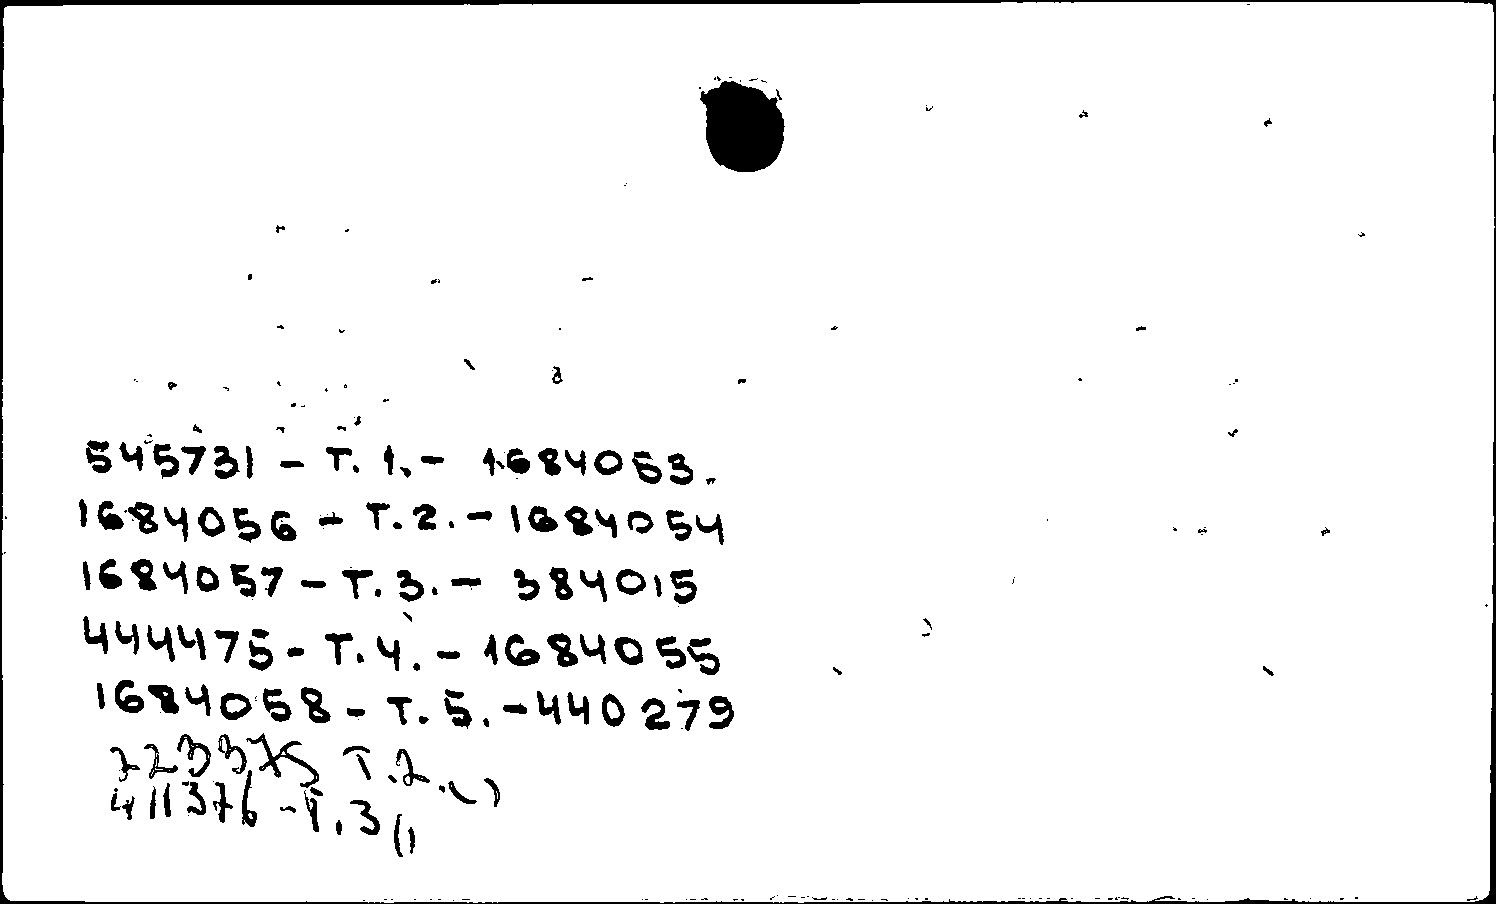 545731 - Т. 1. - 1684053.
1684056 - Т. 2. - 1684054
1684057 - Т. 3. - 384015
444475 - Т. 4. - 1684055
1684058 - Т. 5. - 440279
223375 Т. 2. ( )
411376 - Т. 3 ( )